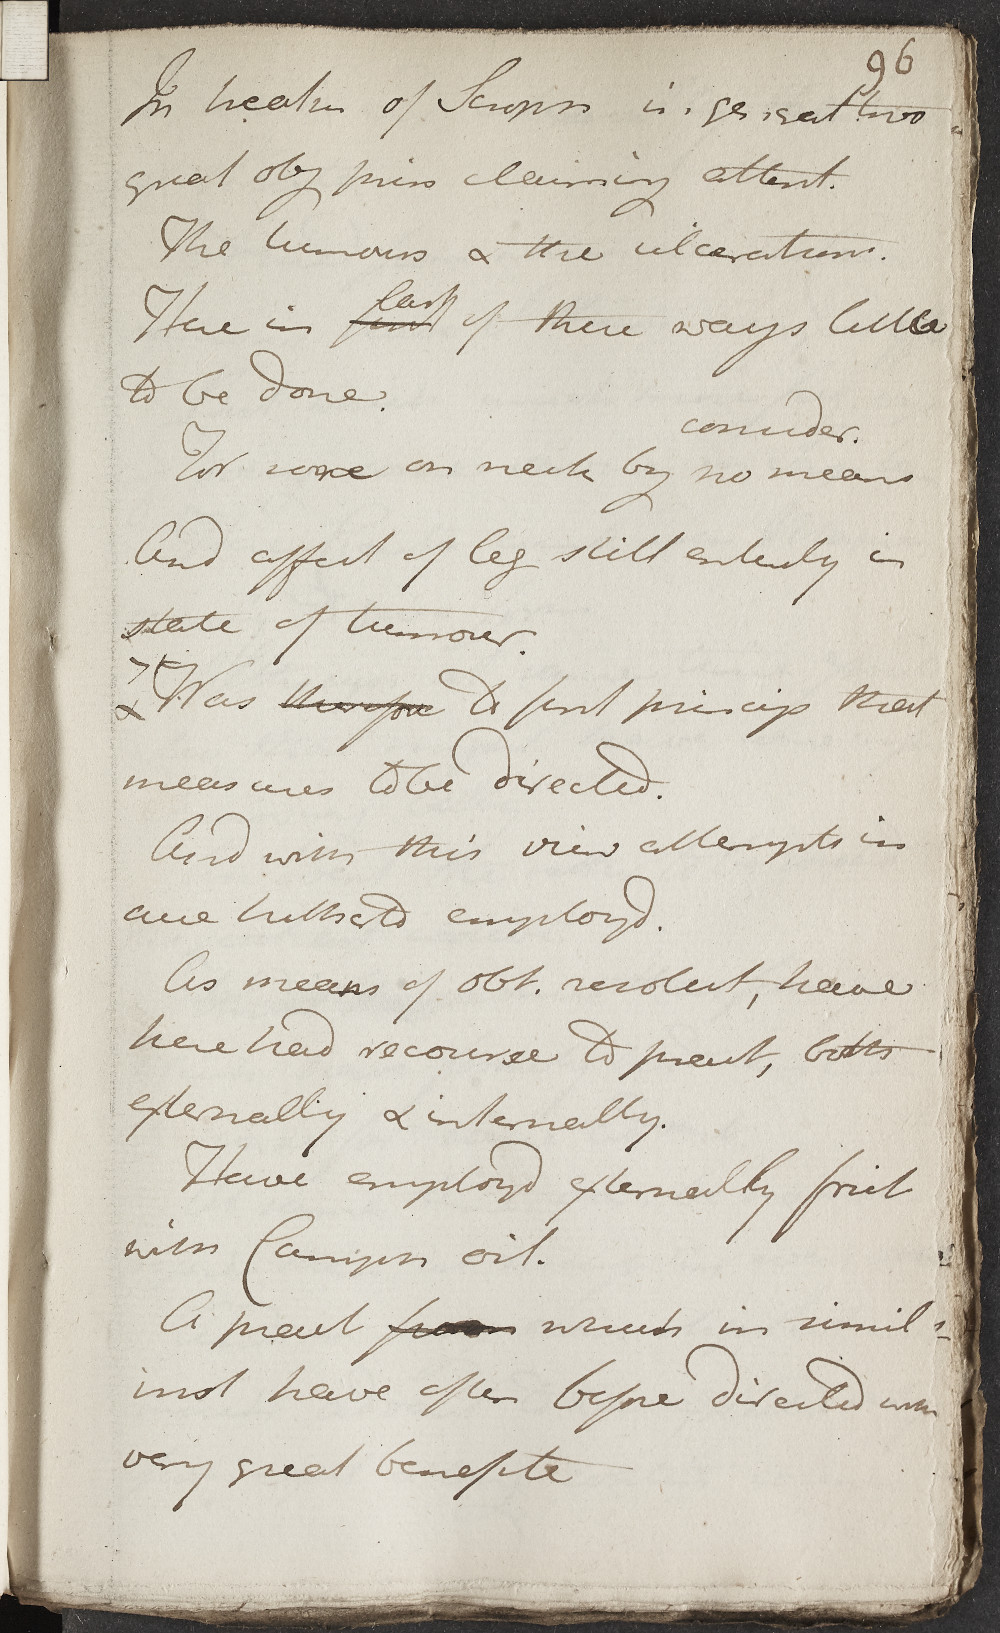 96
In treatm of Scroph in general two
great obj princ claiming attent.
The tumours & the ulcerations.
Here in last first of these ways little
to be done.
consider.
For sore on neck by no means
And affect of leg still entirely in
state of tumour.
& Was therefore to first princip that
measures to be directed.
And with this view attempts in
cure hitherto employd.
As means of obt. resolut, have
here had recourse to pract, both
externally & internally.
Have employd externally frict
with Camph oil.
A pract which in simil
inst have often before directed with
very great benefite